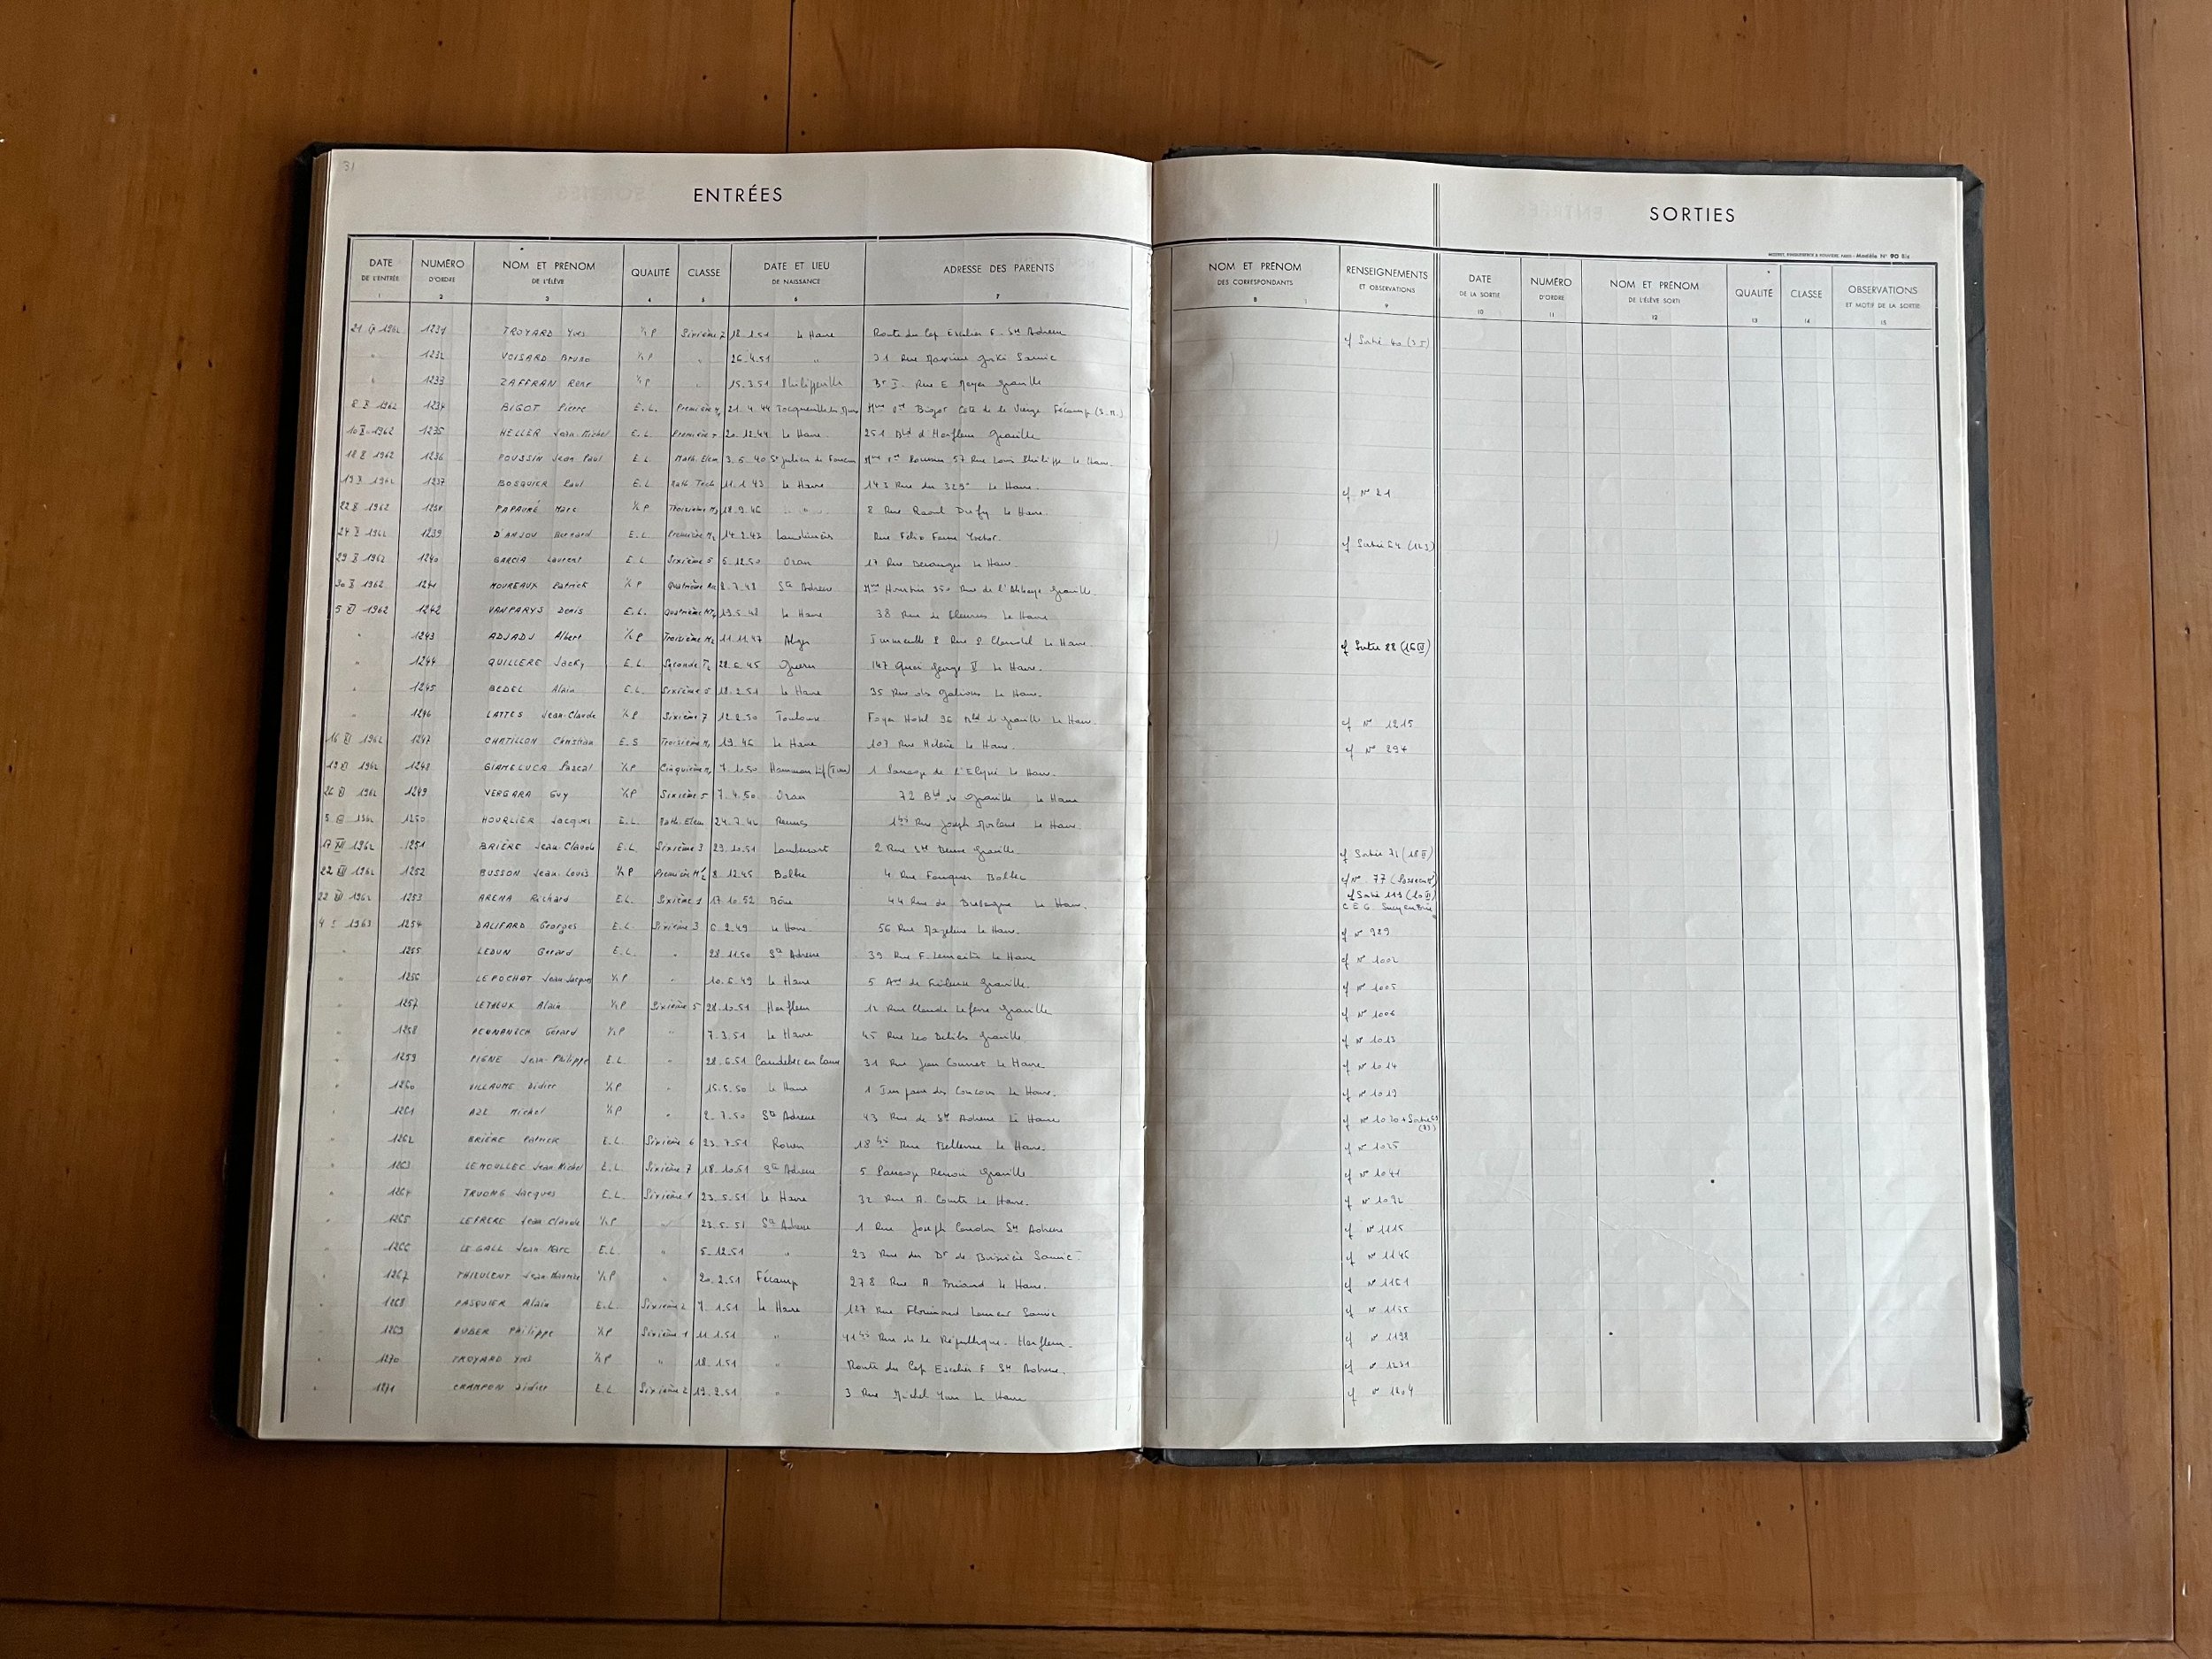 31
ENTRÉES
SORTIES
DATE DE L'ENTRÉE 1 NUMÉRO D'ORDRE 2 NOM ET PRÉNOM DE L'ÉLÈVE 3 QUALITÉ 4 CLASSE 5 DATE ET LIEU DE NAISSANCE 6 ADRESSE DES PARENTS 7 NOM ET PRÉNOM DES CORRESPONDANTS 8 RENSEIGNEMENTS ET OBSERVATIONS 9 DATE DE LA SORTIE 10 NUMÉRO D'ORDRE 11 NOM ET PRÉNOM DE L'ÉLÈVE SORTI 12 QUALITÉ 13 CLASSE 14 OBSERVATIONS ET MOTIF DE LA SORTIE 15
Modèle N° 90 Bis
21 IX 1962 1231 TROYARD Yves ½ P Sixième 2 18.1.51 Le Havre Route du Cap Escalier F. Ste Adresse cf Sortie 40 (35)
" 1232 VOISARD Bruno ½ P " 26.4.51 " 31 Rue Maxime Gorki Sanvic
" 1233 ZAFFRAN René ½ P " 15.3.51 Philippeville Bt I. Rue E Moyer Graville
8 X 1962 1234 BIGOT Pierre E.L. Première 21.4.44 Tocqueville les Murs Mme Bigot Cote de la Vierge Fécamp (S.M.)
10 X 1962 1235 HELLER Jean-Michel E.L. Première 20.12.44 Le Havre 251 Bld d'Harfleur Graville
18 X 1962 1236 POUSSIN Jean Paul E.L Math. Elem 3.6.40 St Julien de Mme Poussin 57 Rue Louis Philippe Le Havre.
19 X 1962 1237 BOSQUIER Paul E.L Math Tech 11.1.43 Le Havre 143 Rue du 329e Le Havre. cf N° 21
22 X 1962 1238 PAPAURÉ Marc ½ P Troisième 18.9.46 " " 8 Rue Raoul Dufy Le Havre.
24 X 1962 1239 D'ANJOU Bernard E.L. Première 14.2.43 Rue Félix Faure Yvetot. cf Sortie 64 (123)
29 X 1962 1240 GARCIA Laurent E.L Sixième 5 5.12.50 Oran 17 Rue Le Havre.
30 X 1962 1241 MOUREAUX Patrick ½ P Quatrième 2.7.48 Ste Adresse Mme 350 Rue de l'Abbaye Graville.
5 XI 1962 1242 VANPARYS Denis E.L. Quatrième 19.5.48 Le Havre 38 Rue de Fleurus Le Havre
" 1243 ADJADJ Albert ½ P Troisième 11.11.47 Alger Immeuble 2 Rue P. Claudel Le Havre. cf Sortie 28 (16 XI)
" 1244 QUILLERE Jacky E.L. Seconde 28.6.45 147 Quai George V Le Havre.
" 1245 BEDEL Alain E.L. Sixième 5 18.2.51 Le Havre 35 Rue des Galions Le Havre.
" 1246 LATTES Jean-Claude ½ P Sixième 7 12.2.50 Toulouse Foyer Hotel 96 Bld de Graville Le Havre. cf N° 1215
16 XI 1962 1247 CHATILLON Christian E.S Troisième 1.9.46 Le Havre 107 Rue Hélène Le Havre. cf N° 294
19 XI 1962 1248 GIAMELUCA Pascal ½ P Cinquième 7.10.50 Hammam Lif (Tun) 1 Passage de l'Elysée Le Havre.
26 XI 1962 1249 VERGARA Guy ½ P Sixième 5 7.4.50 Oran 72 Bld de Graville Le Havre
5 1962 1250 HOURLIER Jacques E.L. Math. Elem 24.7.42 Rennes Rue Joseph Morlent Le Havre.
17 XII 1962 1251 BRIÈRE Jean-Claude E.L. Sixième 3 23.10.51 2 Rue Graville cf Sortie 71 (18 II)
22 XII 1962 1252 BUSSON Jean-Louis ½ P Première 8.12.45 Bolbec 4 Rue Fauquet Bolbec cf N° 77
22 XII 1962 1253 ARENA Richard E.L. Sixième 1 17.10.52 Bône 44 Rue de Bretagne Le Havre. cf Sortie 113
C E G. Sucy en Brie
4 I 1963 1254 DALIFARD Georges E.L. Sixième 3 6.2.49 Le Havre 56 Rue Mazeline Le Havre. cf N° 989
" 1255 LEDUN Gérard E.L. " 28.11.50 Ste Adresse 39 Rue F. Lemaitre Le Havre cf N° 1002
" 1256 LE POCHAT Jean-Jacques ½ P 10.6.49 Le Havre 5 Ave de Frileuse Graville. cf N° 1005
" 1257 LETELUX Alain ½ P Sixième 5 28.10.51 Harfleur 12 Rue Claude Lefevre Graville cf N° 1006
" 1258 Gérard ½ P " 7.3.51 Le Havre 45 Rue Leo Delibes Graville cf N° 1013
" 1259 PIGNE Jean-Philippe E.L. " 28.6.51 Caudebec en Caux 31 Rue Jean Le Havre cf N° 1014
" 1260 VILLAUME Didier ½ P " 15.5.50 Le Havre 1 Impasse des Le Havre. cf N° 1019
" 1261 AZE Michel ½ P " 2.7.50 Ste Adresse 43 Rue de Ste Adresse Le Havre cf N° 1020 + Sortie
" 1262 BRIÈRE Patrick E.L. Sixième 6 23.7.51 Rouen 18 bis Rue Bellevue Le Havre. cf N° 1025
" 1263 LEMOULLEC Jean-Michel E.L. Sixième 7 18.10.51 Ste Adresse 5 Passage Renoir Graville cf N° 1041
" 1264 TRUONG Jacques E.L. Sixième 1 23.5.51 Le Havre 32 Rue A. Comte Le Havre. cf N° 1092
" 1265 LEFRERE Jean Claude ½ P " 23.5.51 Ste Adresse 1 Rue Joseph Ste Adresse cf N° 1115
" 1266 LE GALL Jean-Marc E.L. " 5.12.51 " 23 Rue du Dr de Boissière Sanvic cf N° 1146
" 1267 THIEULENT Jean-Maurice ½ P " 20.2.51 Fécamp 278 Rue A. Briand Le Havre. cf N° 1161
" 1268 PASQUIER Alain E.L. Sixième 2 7.1.51 Le Havre 127 Rue Florimond Laurent Sanvic cf N° 1155
" 1269 AUBER Philippe ½ P Sixième 1 11.1.51 " 41 bis Rue de la République. Harfleur. cf N° 1198
" 1270 TROYARD Yves ½ P " 18.1.51 " Route du Cap Escalier F Ste Adresse. cf N° 1231
" 1271 CRAMPON Didier E.L Sixième 2 19.2.51 " 3 Rue Michel Yvon Le Havre cf N° 1204